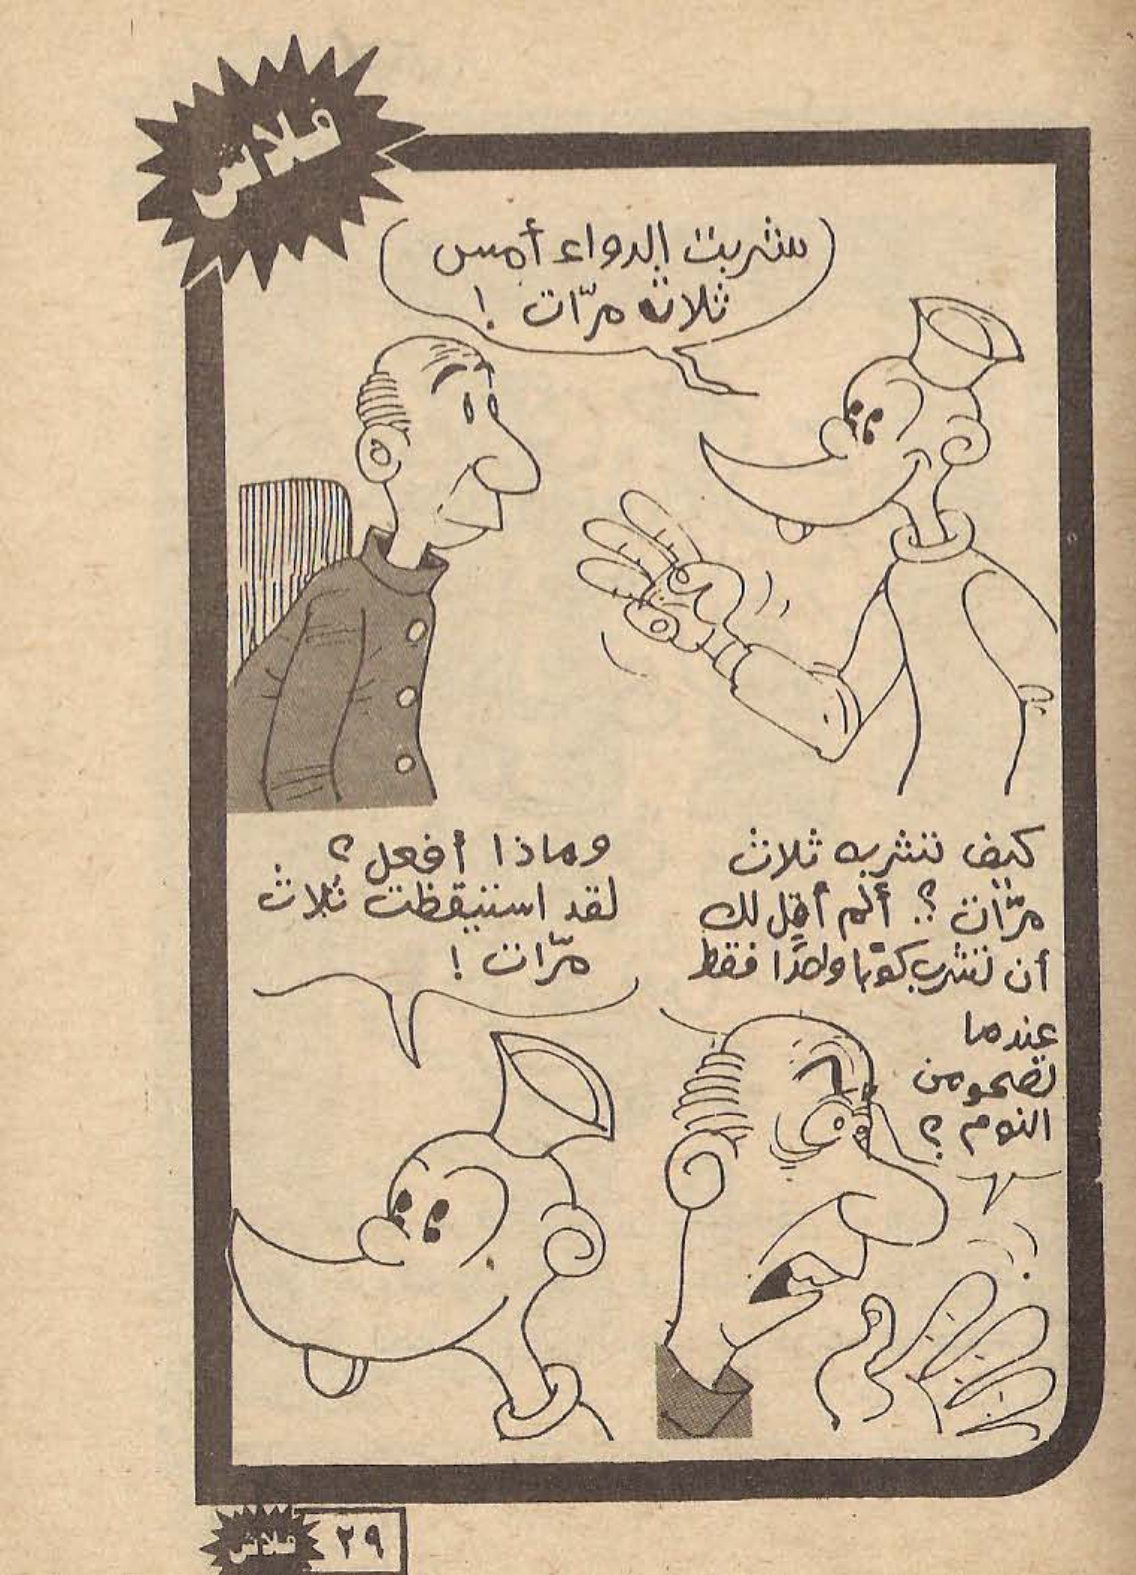 فلاش
شربت الدواء أمس
ثلاث مرّات !
كيف تشرب ثلاث
مرّات ؟ ألم أقل لك
أن تشرب كوبًا واحدًا فقط
عندما
تصحو من
النوم ؟
وماذا أفعل ؟
لقد استيقظت ثلاث
مرّات !
فلاش ٢٩